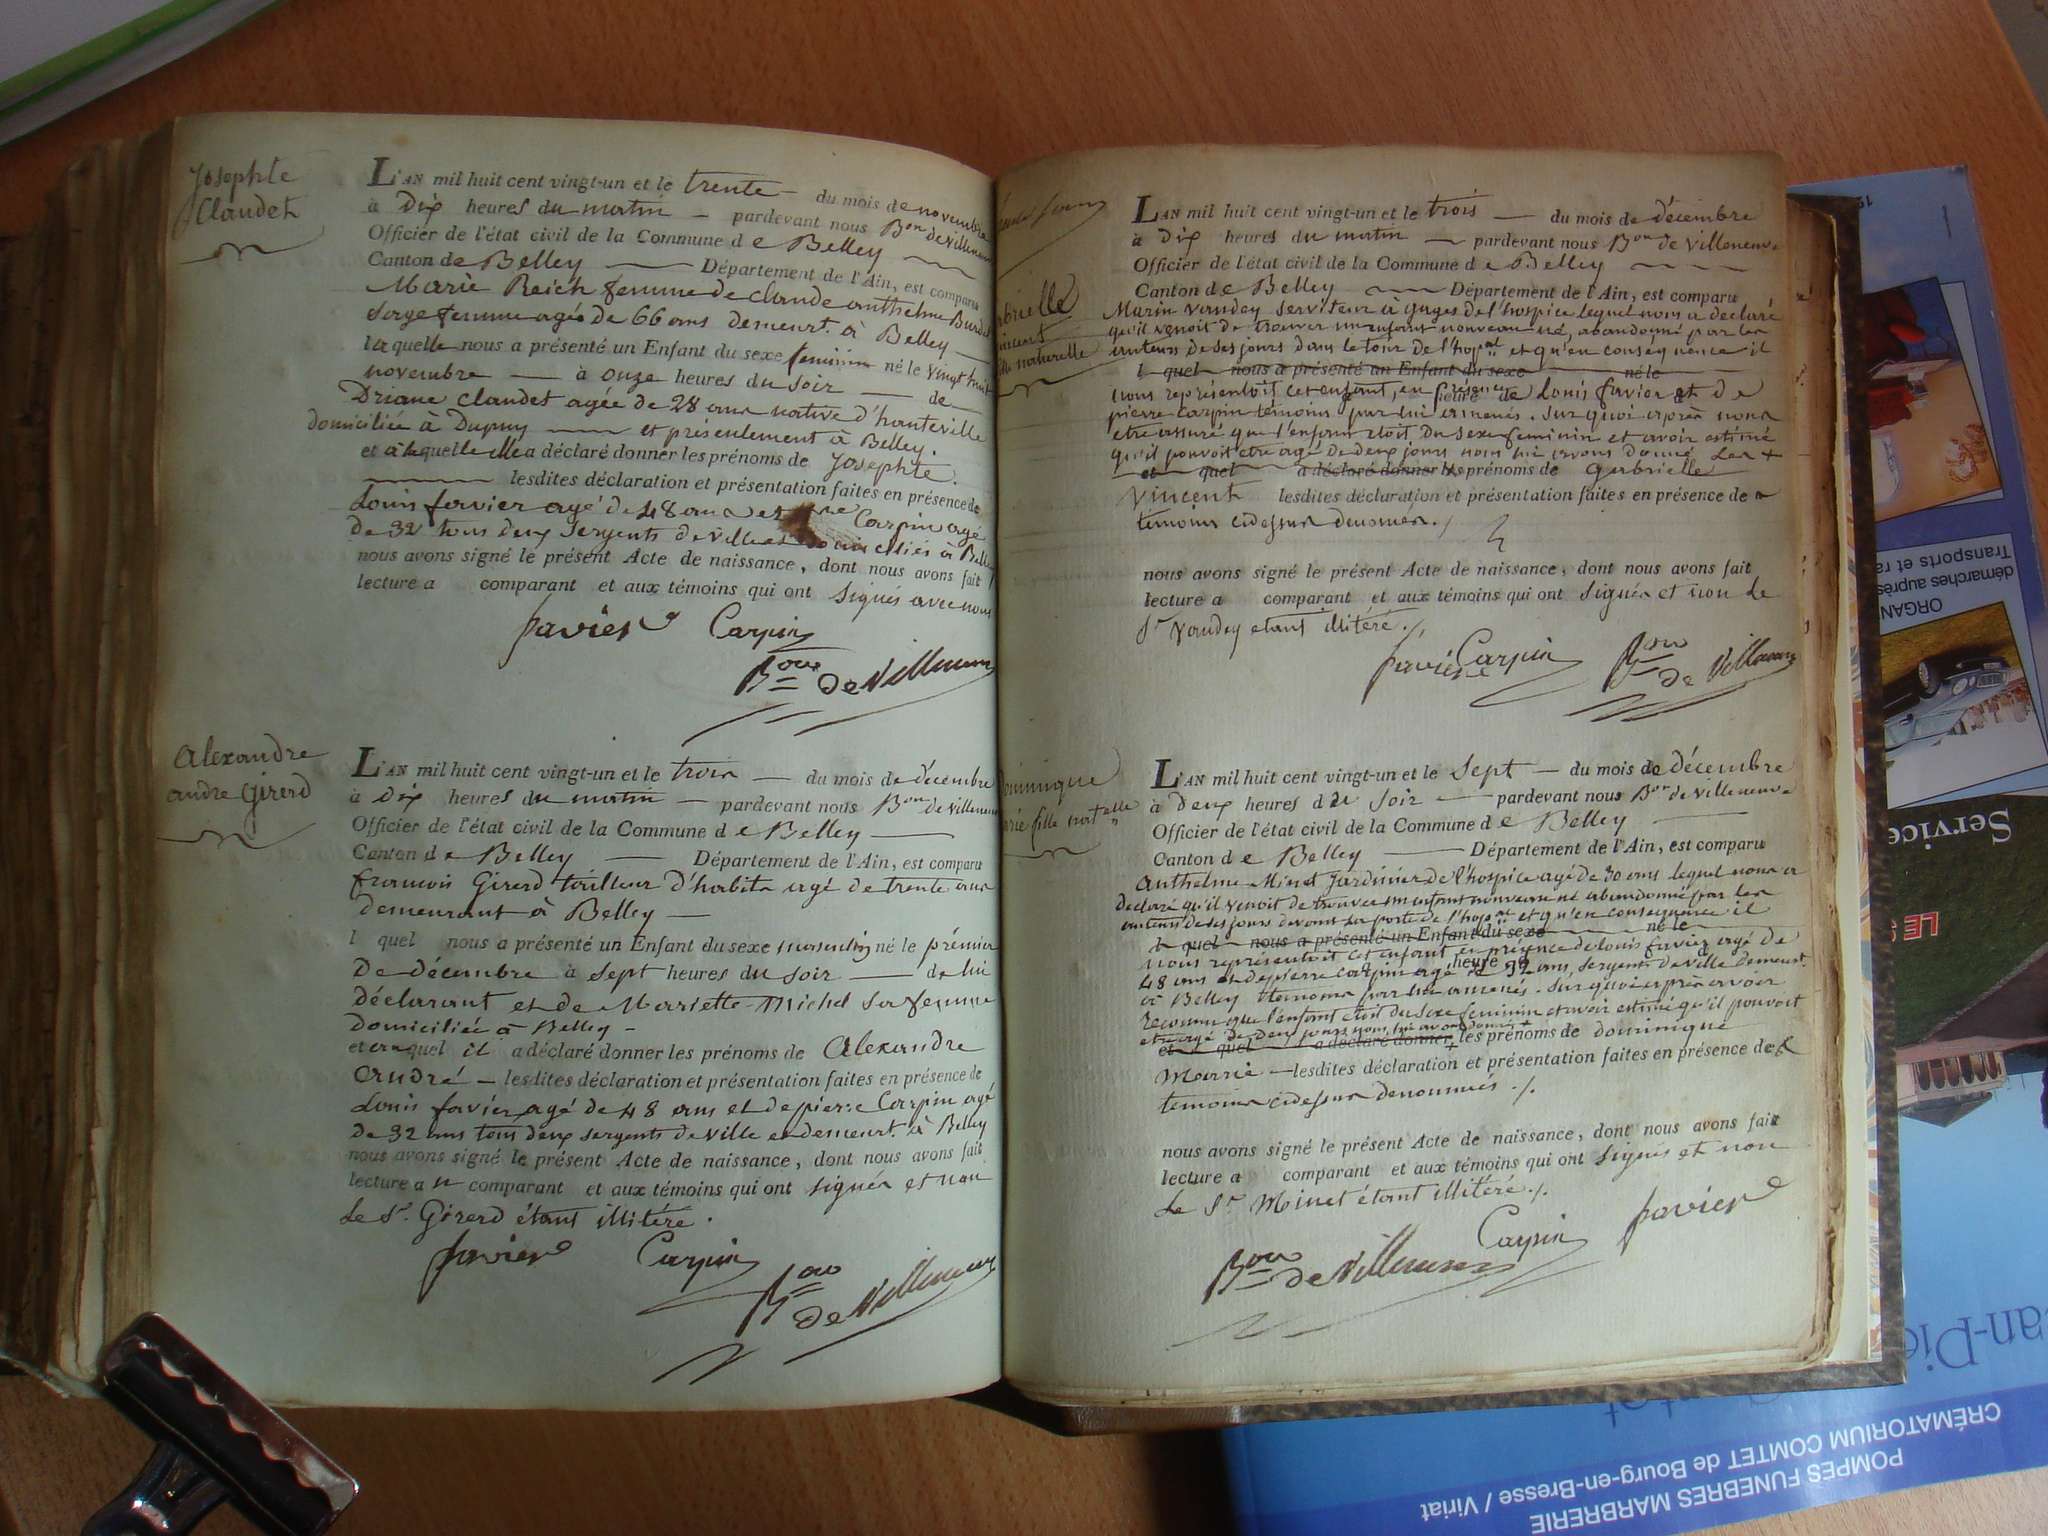 Josephte
Claudet
L'AN mil huit cent vingt-un et le trente du mois de novembre
à Dix heures du matin pardevant nous Bon de villeneuve
Officier de l'état civil de la Commune de Belley
Canton de Belley Département de l'Ain, est comparu
Marie Reich femme de claude anthelme Burdet
sage femme agée de 66 ans demeurt. à Belley
laquelle nous a présenté un Enfant du sexe feminin né le vingt huit
novembre à onze heures du soir de
Driane Claudet agée de 28 ans native d'hauteville
domiciliée à Dupuy et présentement à Belley.
et à laquelle elle a déclaré donner les prénoms de Josephte.
lesdites déclaration et présentation faites en présence de
Louis favier agé de 48 ans et Carpin agé
de 32 tous deux sergents de ville et domiciliés à Belley
nous avons signé le présent Acte de naissance, dont nous avons fait
lecture a comparant et aux témoins qui ont signés avec nous
favier Carpin
Bon de Villeneuve
Alexandre
andre Girerd
L'AN mil huit cent vingt-un et le trois du mois de décembre
à Dix heures du matin pardevant nous Bon de villeneuve
Officier de l'état civil de la Commune de Belley
Canton de Belley Département de l'Ain, est comparu
francois Girerd tailleur d'habits agé de trente ans
demeurant à Belley
l quel nous a présenté un Enfant du sexe masculin né le prémier
De décembre à sept heures du soir de lui
déclarant et de Mariette Michel sa femme
domiciliée à Belley
et auquel il a déclaré donner les prénoms de Alexandre
André lesdites déclaration et présentation faites en présence de
Louis favier agé de 48 ans et de pierre Carpin agé
de 32 ans tous deux sergents de ville et demeurt. à Belley
nous avons signé le présent Acte de naissance, dont nous avons fait
lecture au comparant et aux témoins qui ont signés et non
Le Sr. Girerd étant illitéré.
favier Carpin
Bon
de Villeneuve
naturelle
L'AN mil huit cent vingt-un et le trois du mois de décembre
à Dix heures du matin pardevant nous Bon de villeneuve
Officier de l'état civil de la Commune de Belley
Canton de Belley Département de l'Ain, est comparu
Marin Vandey serviteur à gages de l'hospice lequel nous a déclaré
qu'il venoit de trouver un enfant nouveau né, abandonné par les
auteurs de ses jours dans le tour de l'hopal et qu'en conséquence il
l quel nous a présenté un Enfant du sexe né le
nous représentoit cet enfant, en présence de Louis favier et de
pierre Carpin témoins par lui amenés. Sur quoi après nous
etre assuré que l'enfant etoit du sexe feminin et avoir estimé
qu'il pouvoit etre agé de deux jours nous lui avons donné Les +
et quel a déclaré donner les prénoms de gabrielle
Vincent lesdites déclaration et présentation faites en présence de
témoins cidessus denomés./
nous avons signé le présent Acte de naissance, dont nous avons fait
lecture a comparant et aux témoins qui ont signés et non le
Sr Vandey etant illitéré./.
favier Carpin Bon
de Villeneuve
Dominique
Marie fille natelle
L'AN mil huit cent vingt-un et le sept du mois de décembre
à deux heures du soir pardevant nous Bon de villeneuve
Officier de l'état civil de la Commune de Belley
Canton de Belley Département de l'Ain, est comparu
Anthelme Minet jardinier de l'hospice agé de 30 ans lequel nous a
declaré qu'il venoit de trouver un enfant nouveau né abandonné par les
auteurs de ses jours devant la porte de l'hopal et qu'en conséquence il
l quel nous a présenté un Enfant du sexe né le
nous représentoit cet enfant en présence de Louis favier agé de
heure
48 ans et de pierre Carpin agé de 32 ans, sergents de ville demeurt.
à Belley témoins par lui amenés. Sur quoi après avoir
reconnu que l'enfant etoit du sexe feminin et avoir estimé qu'il pouvoit
etre agé de deux jours nous lui avons donné +
et quel a déclaré donner les prénoms de dominique
Marrie lesdites déclaration et présentation faites en présence de
témoins cidessus denommés./.
nous avons signé le présent Acte de naissance, dont nous avons fait
lecture a comparant et aux témoins qui ont signés et non
Le Sr Minet étant illitéré./.
Bon de Villeneuve Carpin favier
ORGAN
démarches auprès
Transports et ra
Service
LE S
an-Pie
CRÉMATORIUM COMTET de Bourg-en-Bresse / Viriat
POMPES FUNEBRES MARBRERIE